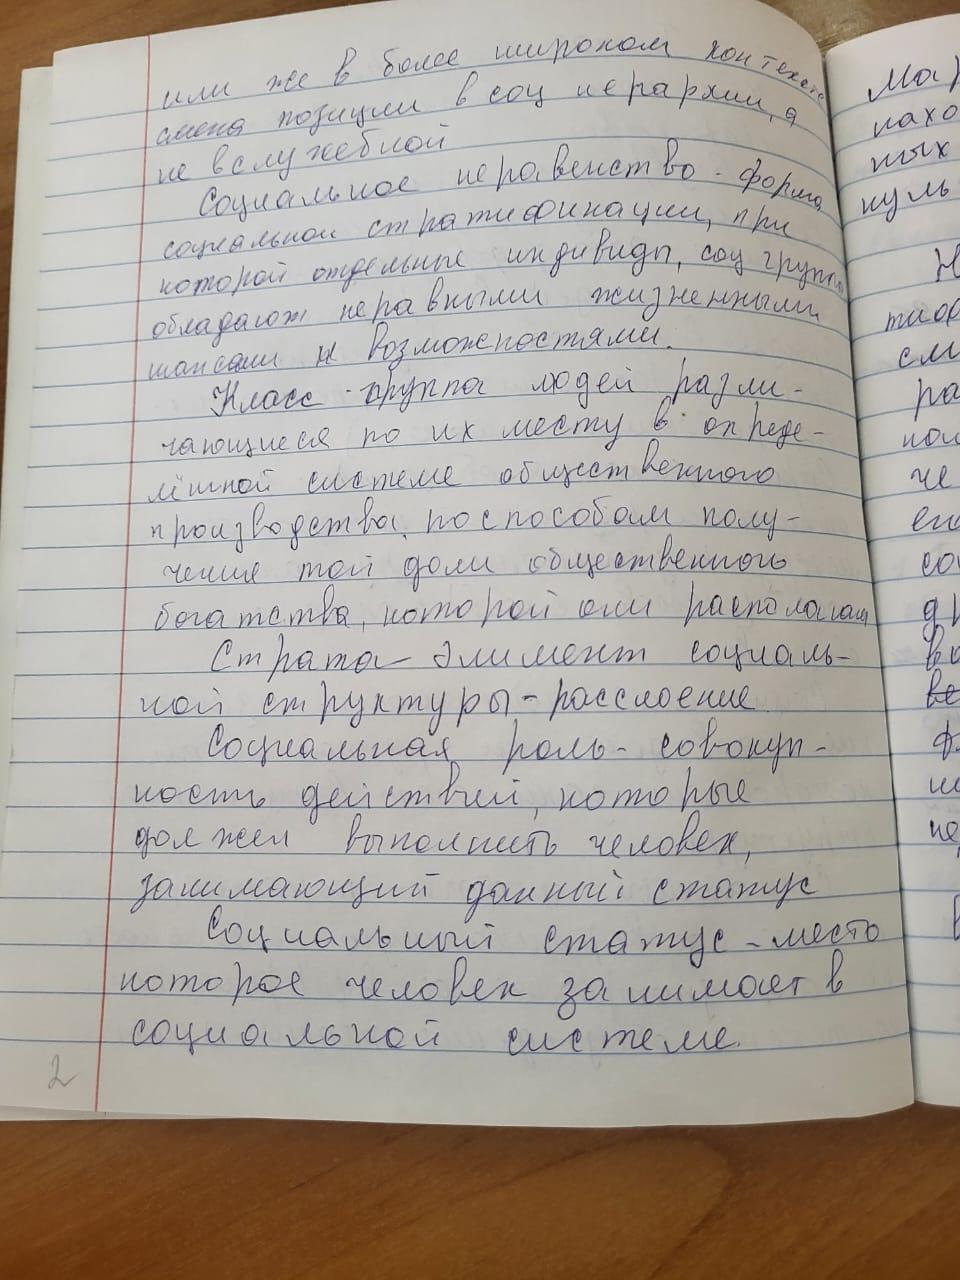 или же в более широком контексте
смена позиции в соц иерархии, а
не в служебной
Социальное неравенство - форма
социальной стратификации, при
которой отдельные индивиды, соц группы
обладают неравными жизненными
шансами и возможностями.
Класс - группа людей разли-
чающиеся по их месту в опреде-
лённой системе общественного
производства, по способам полу-
чения той доли общественного
богатства, которой они располагают
Страта - элимент социаль-
ной структуры - расслоение
Социальная роль - совокуп-
ность действий, которые
должен выполнить человек,
занимающий данный статус
Социальный статус - место
которое человек занимает в
социальной системе.
2
мар
нахо
ных
куль
Н
тиор
см
ра
пол
че
ена
со
др
во
ве
ф
не